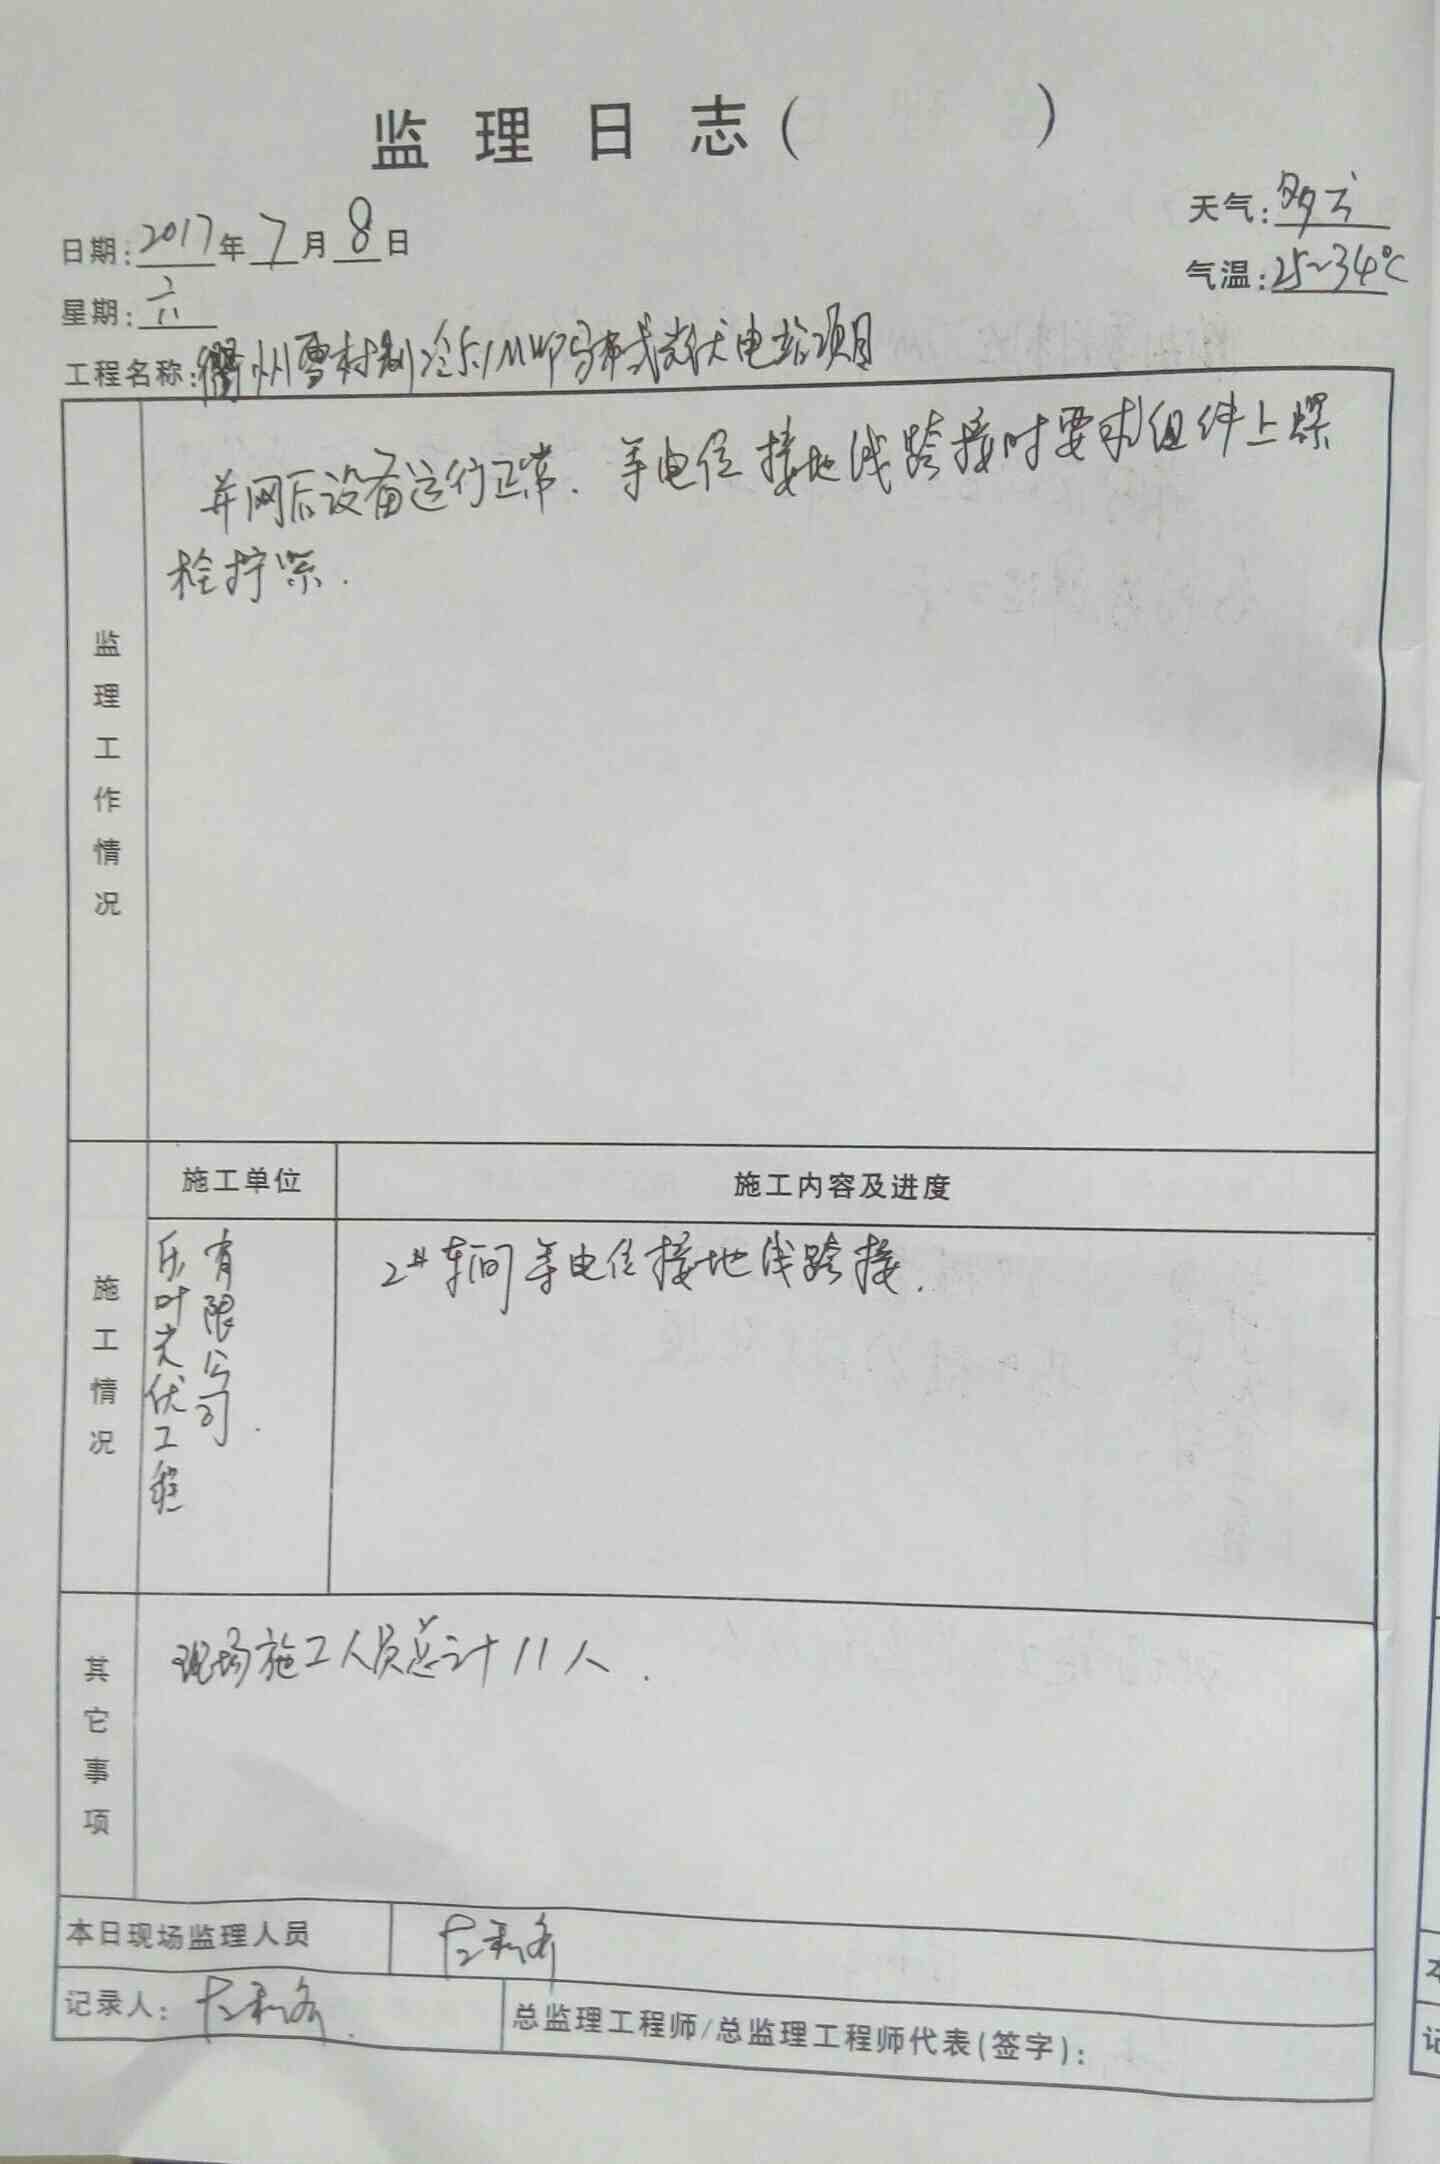 监理日志（ ）
日期：2017年7月8日
天气：多云
星期：六
气温：25~34℃
工程名称：衢州雪村制冷5.1MWP分布式光伏电站项目
监理工作情况
并网后设备运行正常．等电位接地线跨接时要求组件上螺
栓拧紧．
施工情况
施工单位
施工内容及进度
乐叶光伏工程
有限公司．
2#车间等电位接地线跨接．
其它事项
现场施工人员总计11人．
本日现场监理人员
记录人：
总监理工程师/总监理工程师代表（签字）：